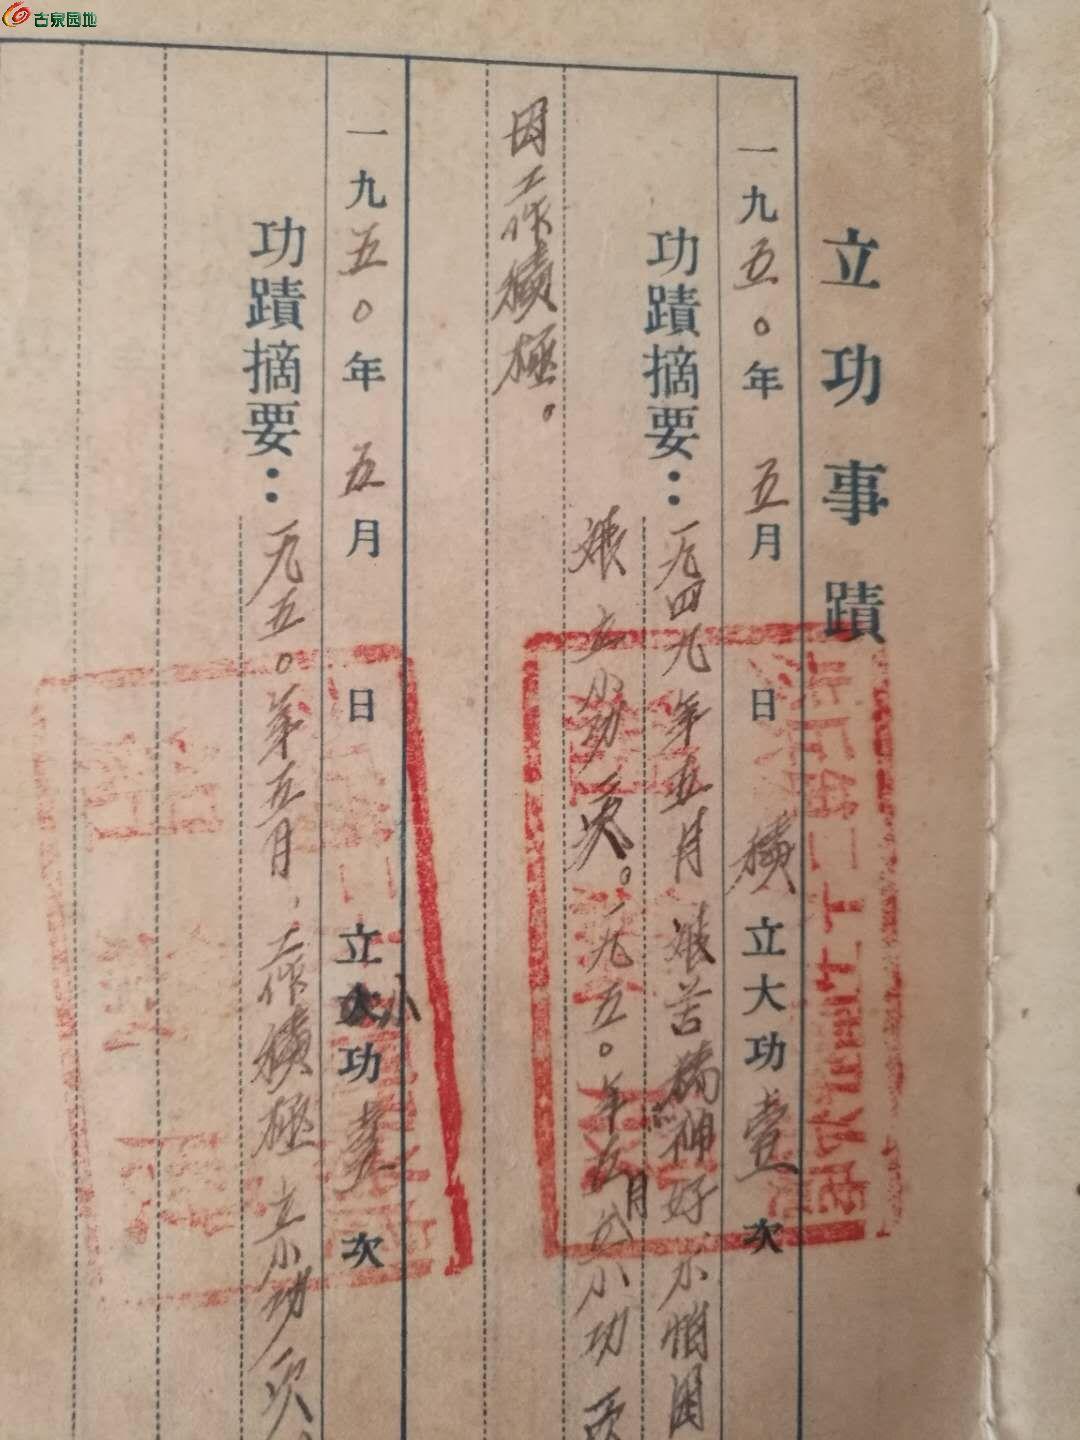 古泉园地
立功事蹟
一九五〇年五月 日積立大功壹次
功蹟摘要：一九四九年五月艱苦精神好．不怕困
难立小功一次。一九五〇年五月立小功一次
因工作積極。
一九五〇年五月 日 立小功壹次
功蹟摘要：一九五〇年五月．工作積極立小功一次．